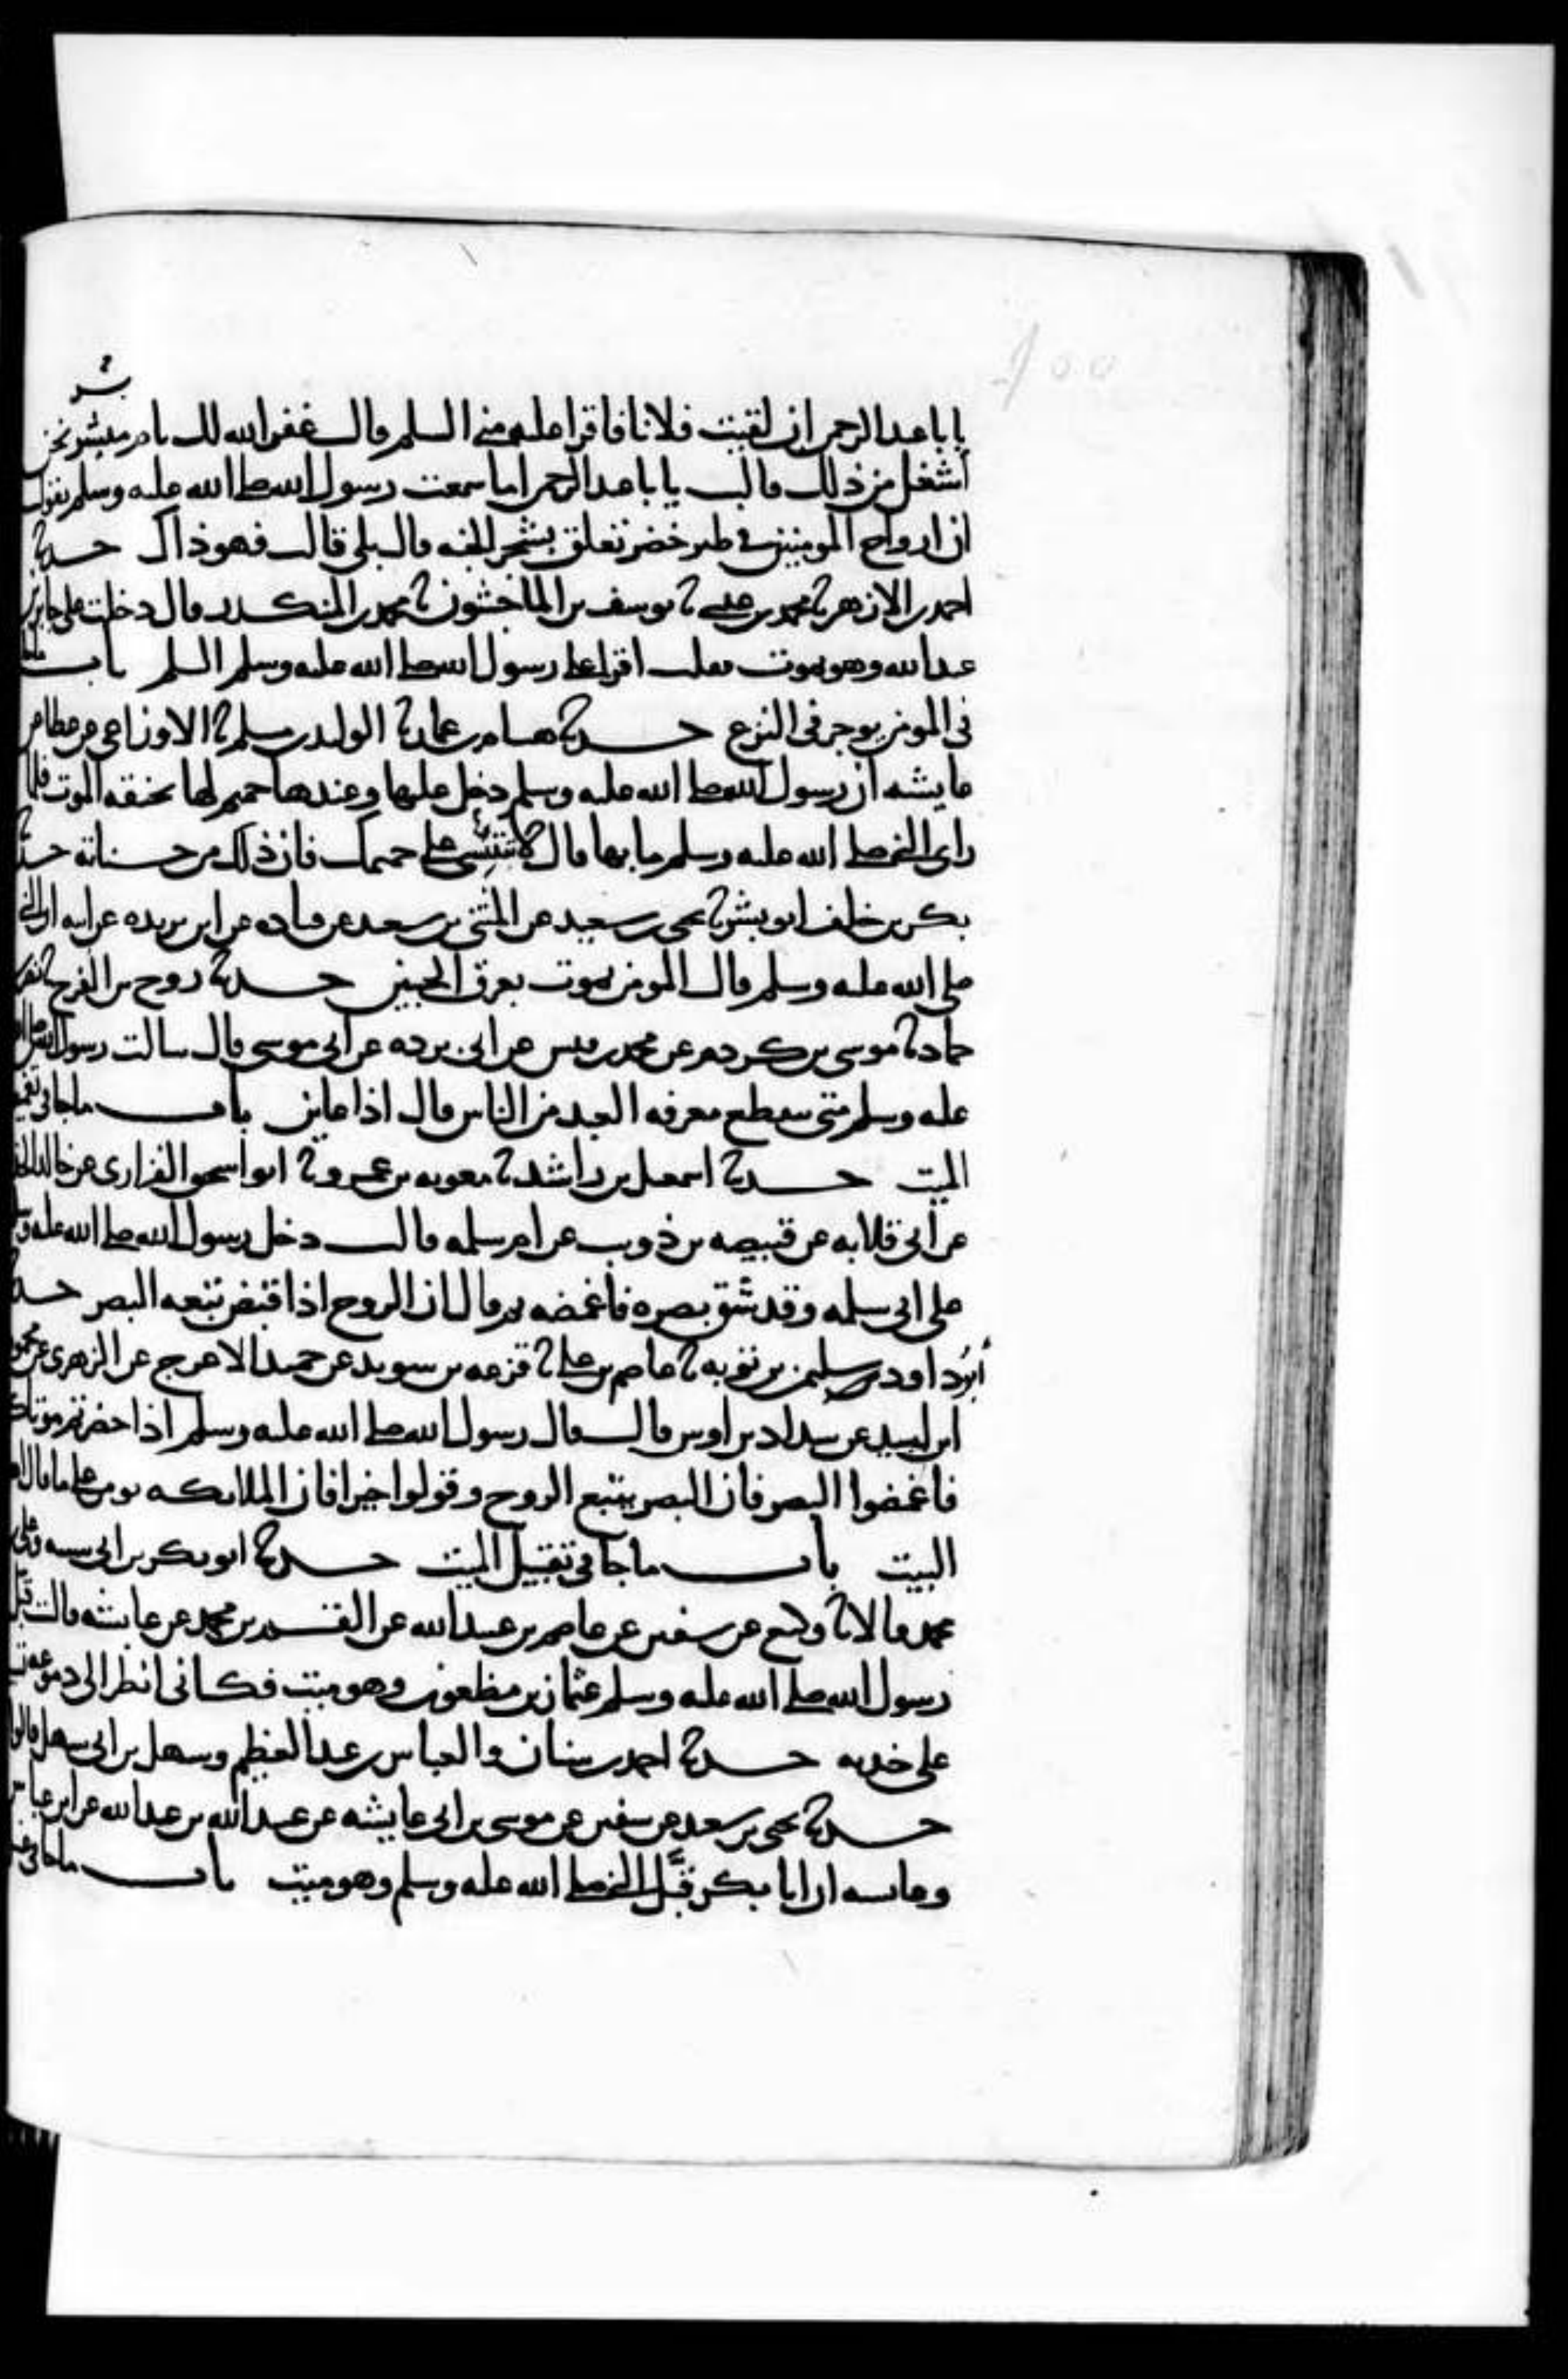 يابا عبد الرحمن ان لقيت فلانا فاقرا عليه مني السلم قال غفر الله لك يام مبشر نحن
اشغل من ذلك قالت يابا عبد الرحمن اما سمعت رسول الله صلى الله عليه وسلم يقول
ان ارواح المومنين في طير خضر تعلق بشجر الجنه قال بلى قالت فهو ذاك حدثنا
احمد بن الازهر نا محمد بن عيسى نا يوسف بن الماجشون نا محمد بن المنكدر قال دخلت على جابر بن
عبد الله وهو يموت فقلت اقرا على رسول الله صلى الله عليه وسلم السلم باب ماجا
في المومن يوجر في النزع حدثنا هشام بن عمار نا الوليد بن مسلم نا الاوزاعي عن عطا عن
عايشه ان رسول الله صلى الله عليه وسلم دخل عليها وعندها حميم لها يخنقه الموت فلما
راى النبي صلى الله عليه وسلم ما بها قال لا تبتئسي على حميمك فان ذلك من حسناته حدثنا
بكر بن خلف ابو بشر نا يحيى بن سعيد عن المثنى بن سعيد عن قتاده عن ابن بريده عن ابيه ان النبي
صلى الله عليه وسلم قال المومن يموت بعرق الجبين حدثنا روح بن الفرج نا نصر بن
حماد نا موسى بن كردم عن محمد بن قيس عن ابى برده عن ابى موسى قال سالت رسول الله صلى الله
عليه وسلم متى تنقطع معرفه العبد من الناس قال اذا عاين باب ماجا في تغميض
الميت حدثنا اسمعيل بن راشد نا معويه بن عمرو نا ابو اسحق الفزارى عن خالد الحذا
عن ابى قلابه عن قبيصه بن ذويب عن ام سلمه قالت دخل رسول الله صلى الله عليه وسلم
على ابى سلمه وقد شق بصره فاغمضه ثم قال ان الروح اذا قبض تبعه البصر حدثنا
ابو داود سليمن بن توبه نا عاصم بن علي نا قزعه بن سويد عن حميد الاعرج عن الزهرى عن محمود
ابن لبيد عن شداد بن اوس قال قال رسول الله صلى الله عليه وسلم اذا حضرتم موتاكم
فاغمضوا البصر فان البصر يتبع الروح وقولوا خيرا فان الملايكه تومن على ما قال اهل
البيت باب ماجا في تقبيل الميت حدثنا ابو بكر بن ابى شيبه وعلي بن
محمد قالا نا وكيع عن سفين عن عاصم بن عبيد الله عن القسم بن محمد عن عايشه قالت قبل
رسول الله صلى الله عليه وسلم عثمان بن مظعون وهو ميت فكانى انظر الى دموعه تسيل
على خديه حدثنا احمد بن سنان والعباس بن عبد العظيم وسهل بن ابى سهل قالوا
حدثنا يحيى بن سعيد عن سفين عن موسى بن ابى عايشه عن عبيد الله بن عبد الله عن ابن عباس
وعايشه ان ابا بكر قبل النبي صلى الله عليه وسلم وهو ميت باب ماجا في غسل